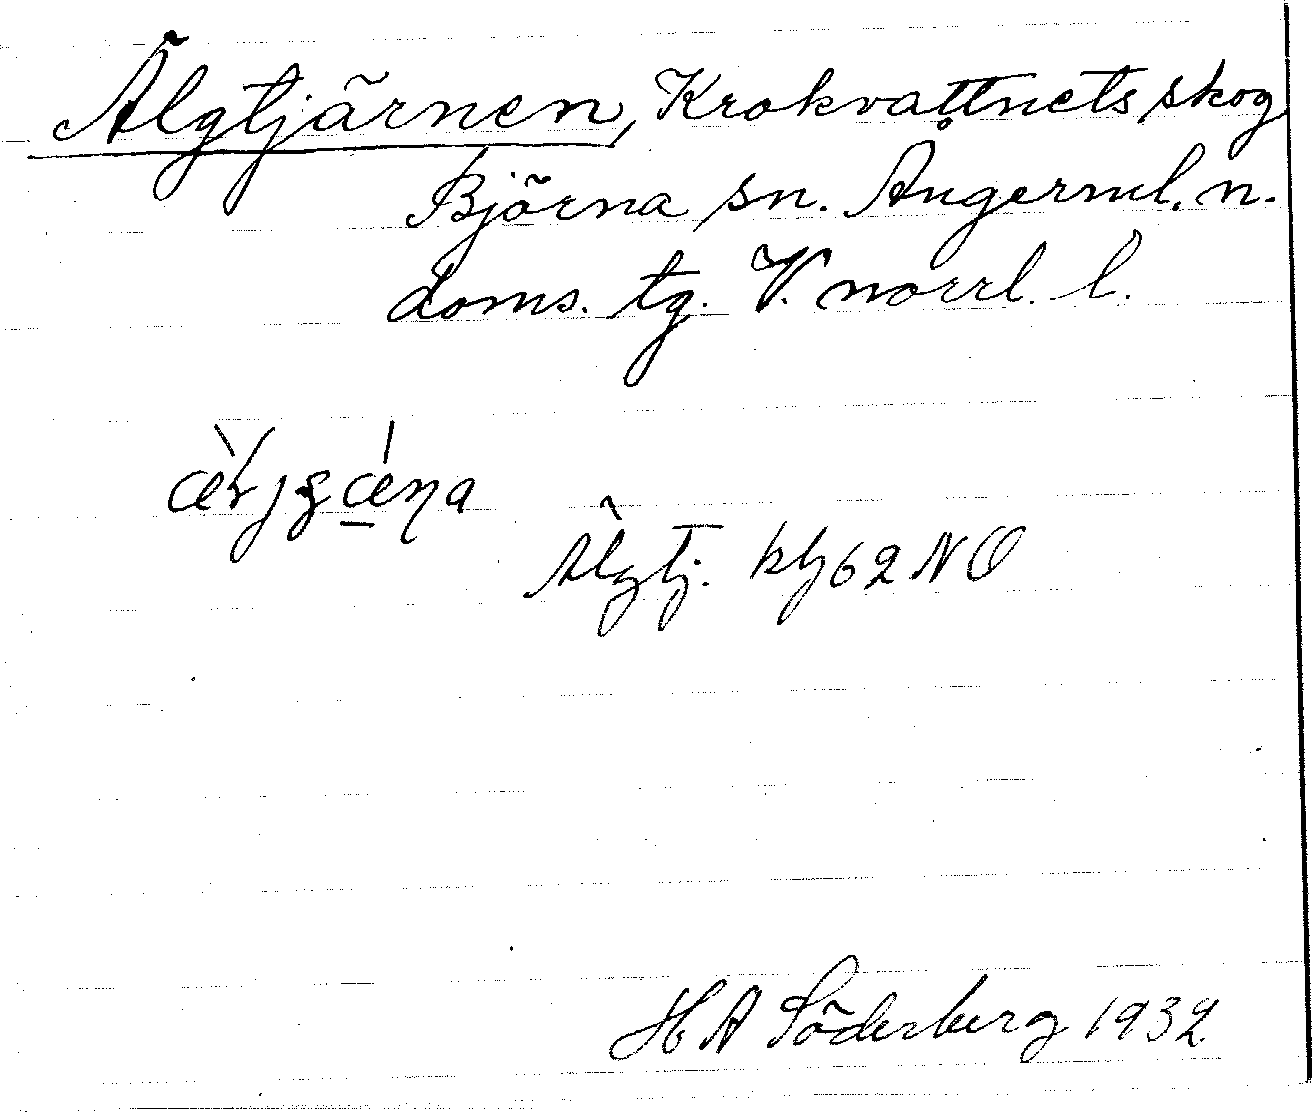 Älgtjärnen, Krokvattnets skog
Björna sn. Ångerml. n.
doms. tg. V. norrl. l.
Älgtj. ktj 62 NO
H A Söderberg 1932